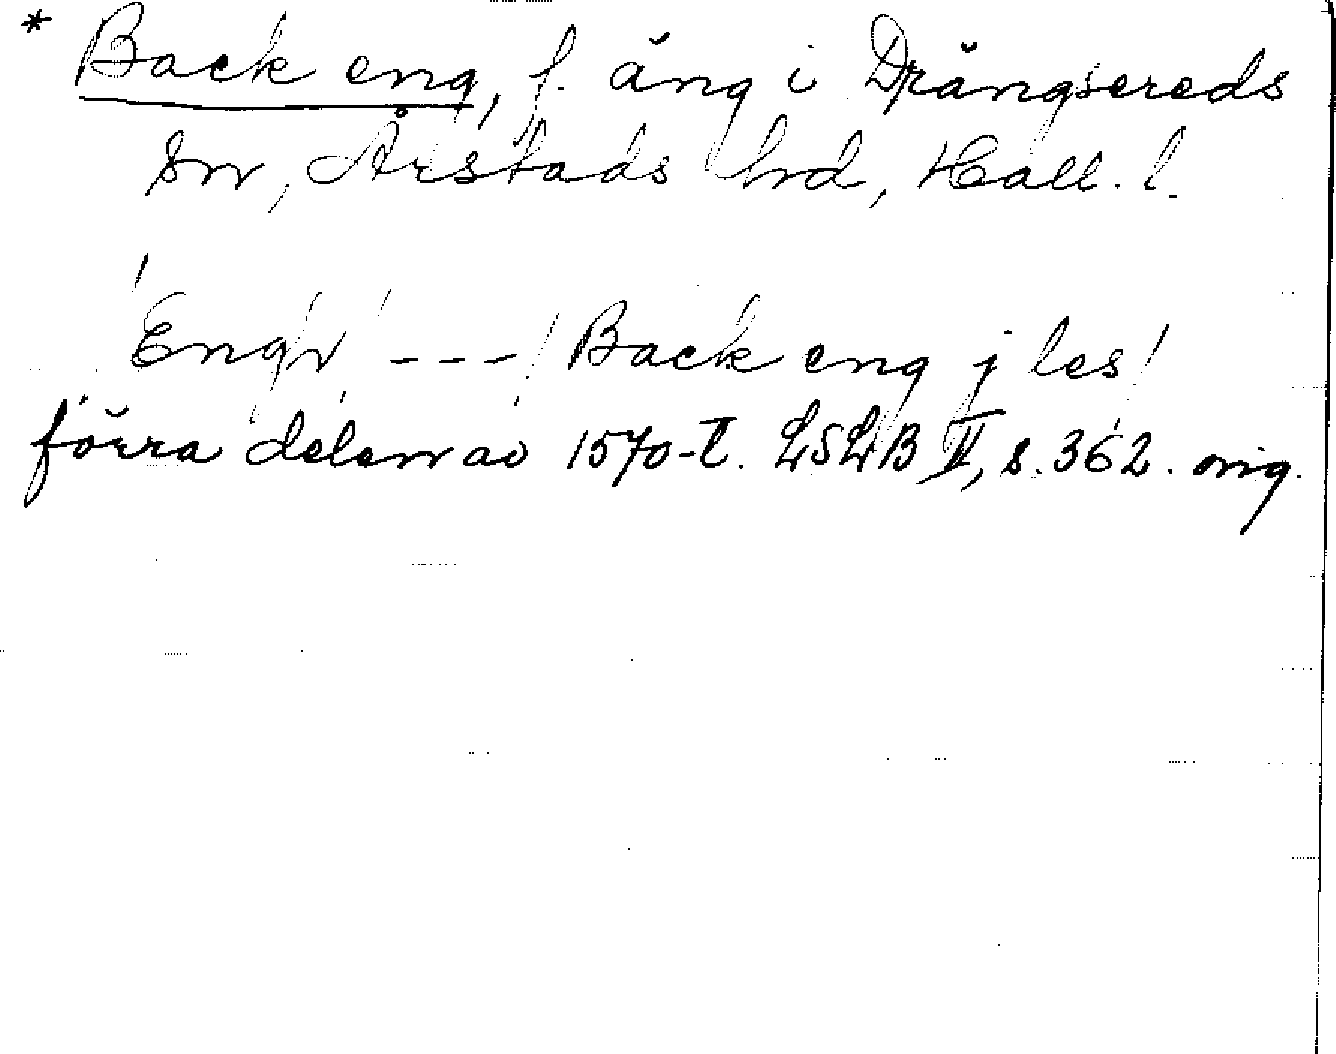 * Back eng, f. äng i Drängsereds
sn, Årstads hrd, Hall. l.
Eng'r --- / Back eng j les /
förra delen av 1570-t. LSLB II, s. 362. orig.